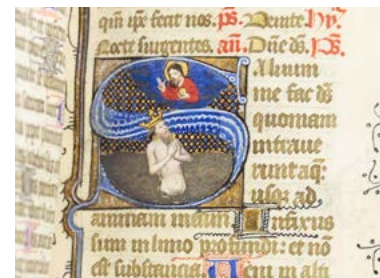 qm ipe fecit nos. ps. Venite. hy.
Nocte surgentes. an. Dñe ds. ps.
Aluum
me fac ds
quoniam
intraue
runt aq̄:
usq; ad
animam meam. Infixus
sum in limo profundi: et nō
est substancia. Ueni in alti